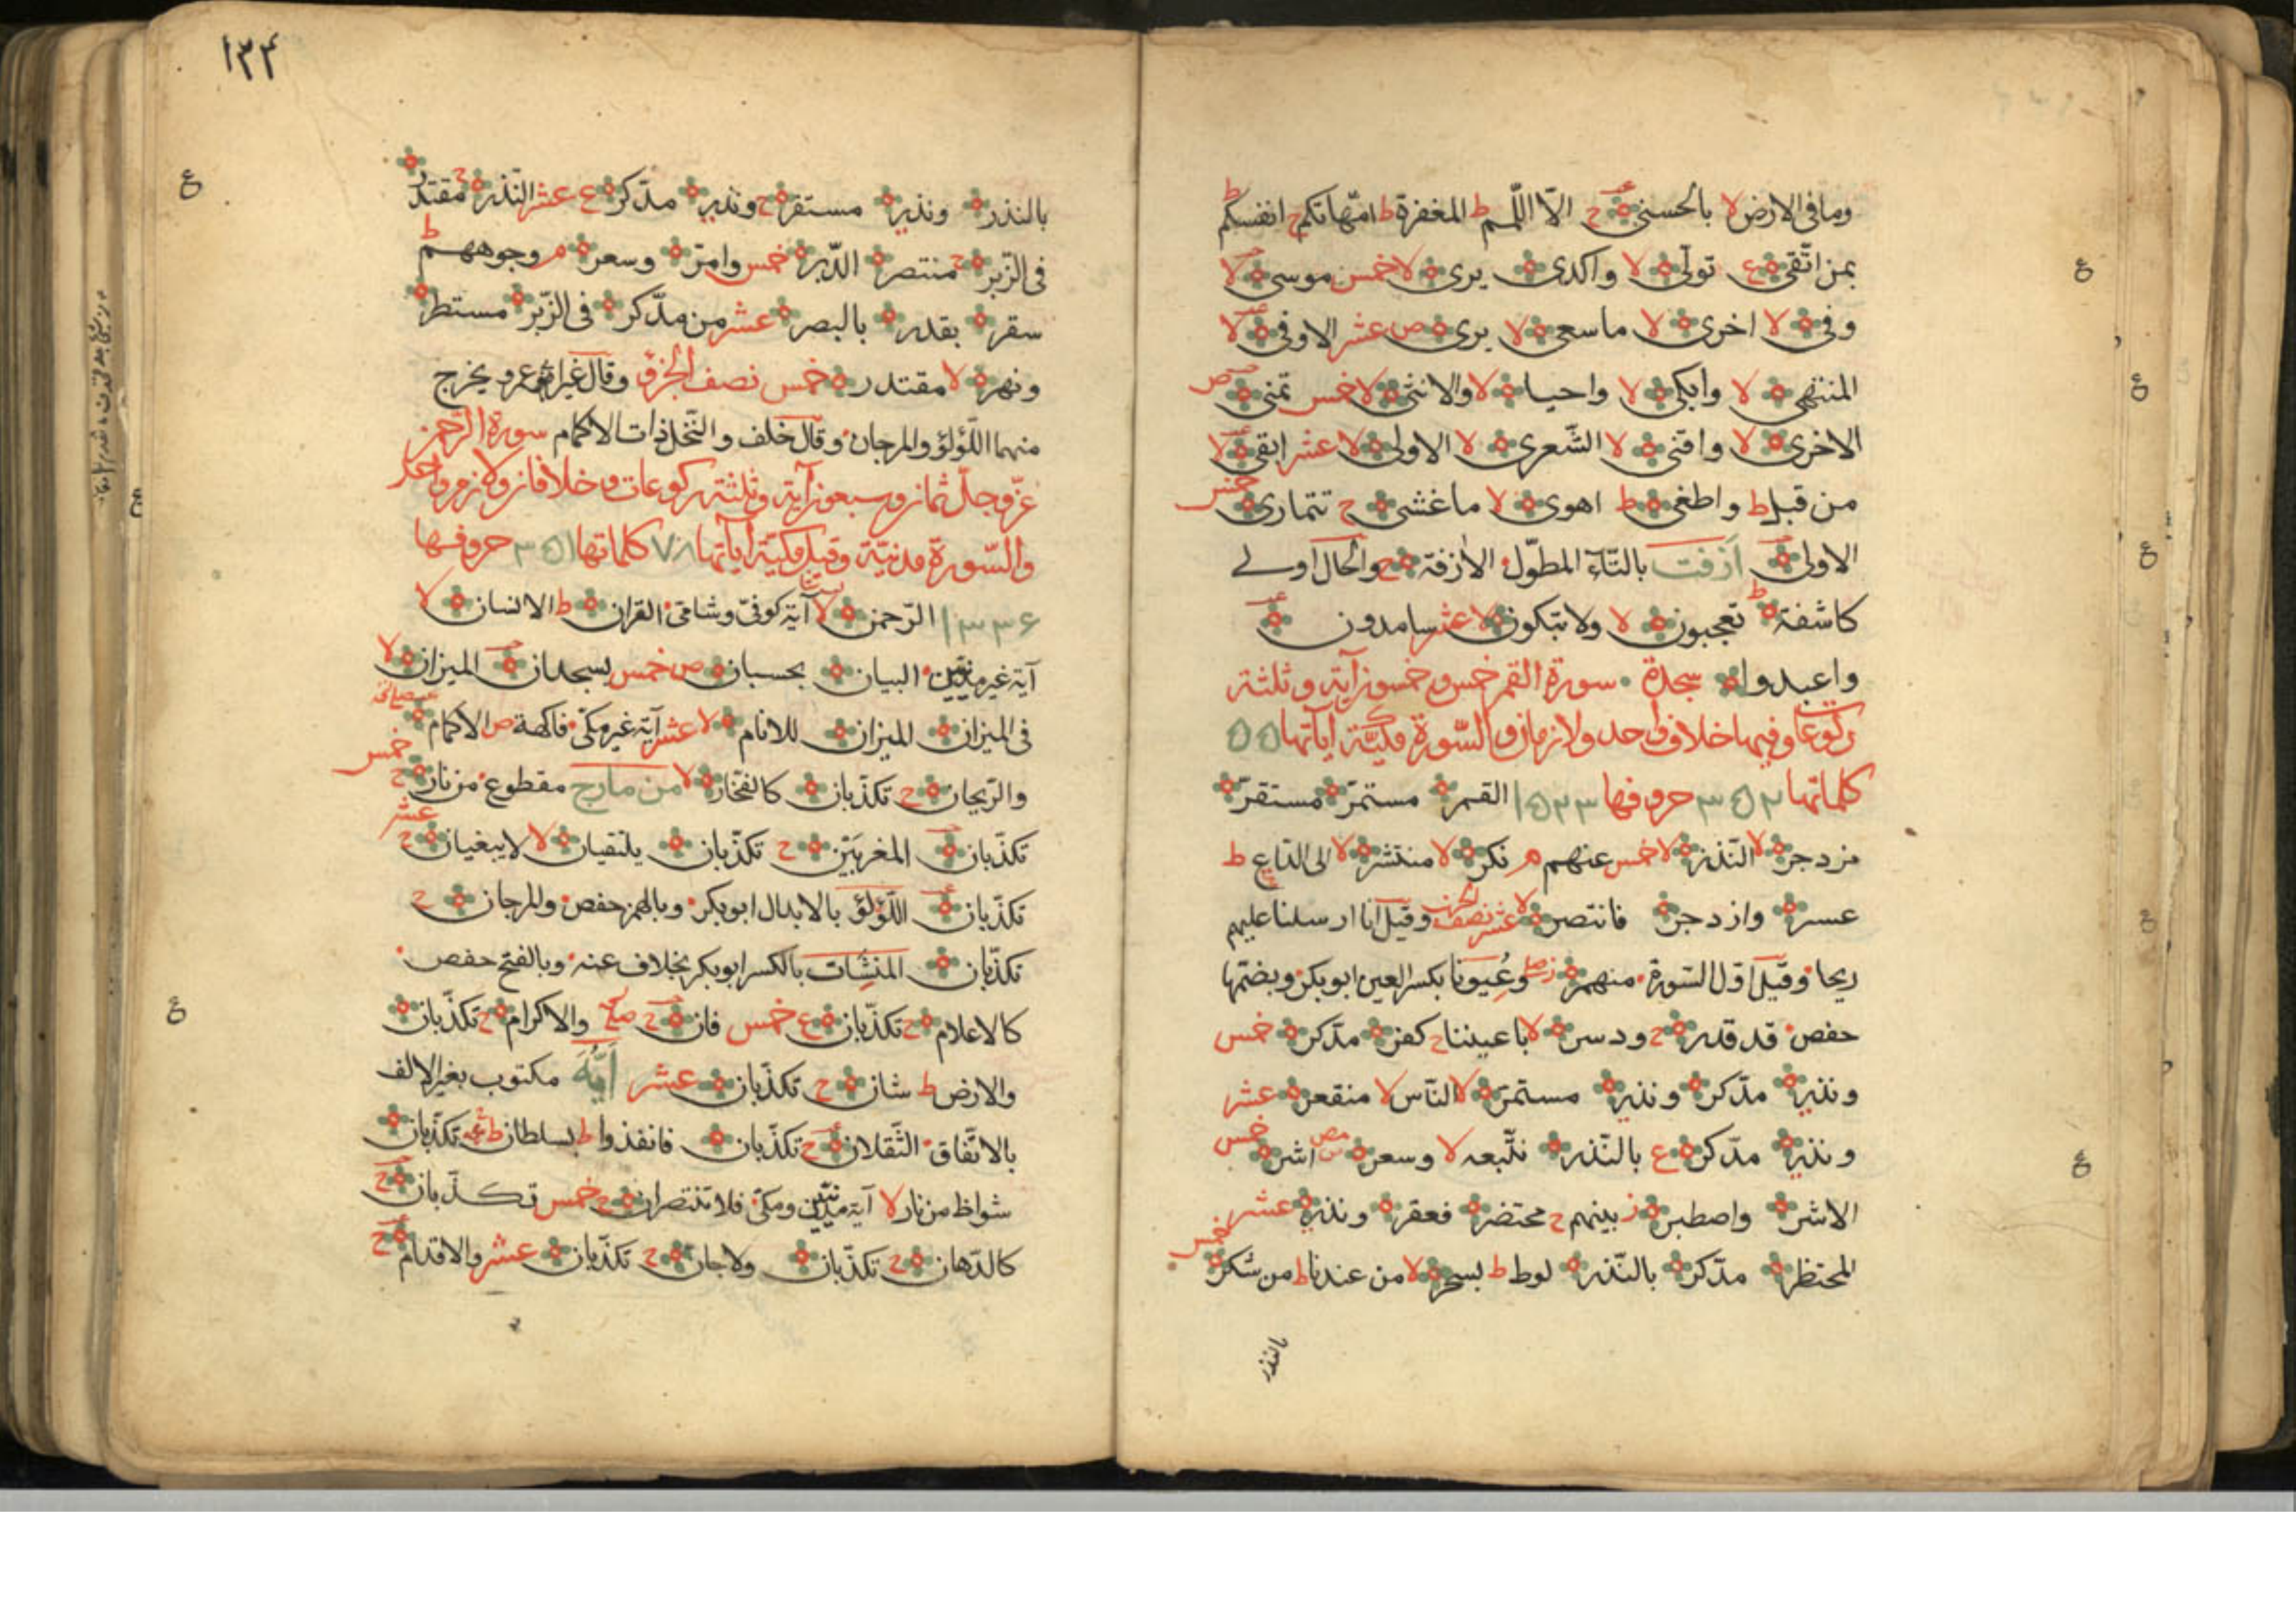 وما فى الارض لا بالحسنى ح الّا اللّمم ط المغفرة ط امّهاتكم ح انفسكم ط
بمن اتّقى ع تولّى لا واكدى يرى لا خمس موسى لا
وفى لا اخرى لا ما سعى لا يرى ص عشر الاوفى لا
المنتهى لا وابكى لا واحيا لا والانثى لا خمس تمنى ص
الاخرى لا واقنى لا الشّعرى لا الاولى لا عشر ابقى لا
من قبل ط واطغى ط اهوى لا ما غشى ح تتمارى خمس
الاولى اَزفت بالتّاء المطوّل الازفة ح والحال اولى
كاشفة ط تعجبون لا ولا تبكون لا عشر سامدون
واعبدوا سجدة سورة القمر خمس وخمسون آية وثلثة
ركوعات وفيها خلاف واحد ولازمان والسّورة مكيّة آياتها ۵۵
كلماتها ۳۵۲ حروفها ۱۵۲۳ القمر مستمرّ مستقرّ
مزدجر لا النّذر لا خمس عنهم م نكر لا منتشر لا الى الدّاع ط
عسر وازدجر فانتصر لا عشر نصف الحزب وقيل انا ارسلنا عليهم
ريحا وقيل اوّل السّورة منهمر ز وعُيونا بكسر العين ابوبكر وبضمّها
حفص قد قدر ح ودسر لا باعيننا ح كفر مدّكر خمس
ونذر مدّكر ونذر مستمرّ لا النّاس لا منقعر عشر
ونذر مدّكر ع بالنّذر نتّبعه لا وسعر اشر خمس
الاشر واصطبر ز بينهم ح محتضر فعقر ونذر عشر
المحتظر مدّكر بالنّذر لوط ط بسحر لا من عندنا ط من شكر خمس
بالنذر
۱۳۴
بالنذر ونذر مستقرّ ح ونذر مدّكر ع عشر النّذر ح مقتدر
فى الزّبر ح منتصر الدّبر خمس وامرّ وسعر م وجوههم ط
سقر بقدر بالبصر عشر من مدّكر فى الزّبر مستطر
ونهر لا مقتدر خمس نصف الجزؤ وقال غير ابى عمرو يخرج
منهما اللّؤلؤ والمرجان وقال خلف والنّخل ذات الاكمام سورة الرّحمن
عزّ وجلّ ثمان وسبعون آية وثلثة ركوعات وخلافان ولازم واحد
والسّورة مدنيّة وقيل مكيّة آياتها ۷۸ كلماتها ۳۵۱ حروفها
۱۳۳۶ الرّحمن لا آية كوفىّ وشامىّ القران ط الانسان لا
آية غير مدنيّين البيان بحسبان ص خمس يسجدان الميزان لا
فى الميزان الميزان للانام لا عشر آية غير مكّىّ فاكهة ص الاكمام
والرّيحان ح تكذّبان كالفخّار لا من مارج مقطوع من نار ح خمس
تكذّبان المغربَيْن ح تكذّبان يلتقيان لا لا يبغيان ح عشر
تكذّبان اللّؤلؤ بالابدال ابوبكر وبالهمز حفص والمرجان ح
تكذّبان المنشِات بالكسر ابوبكر بخلاف عنه وبالفتح حفص
كالاعلام ح تكذّبان ع خمس فان ح صلى والاكرام ح تكذّبان
والارض ط شان ح تكذّبان عشر اَيُّهَ مكتوب بغير الالف
بالاتّفاق الثّقلان ح تكذّبان فانفذوا ط بسلطان ط تكذّبان
شواظ من نار لا آية مدنيّين ومكّىّ فلا تنتصران ح خمس تكذّبان ح
كالدّهان ح تكذّبان ولا جانّ ح تكذّبان عشر والاقدام ح